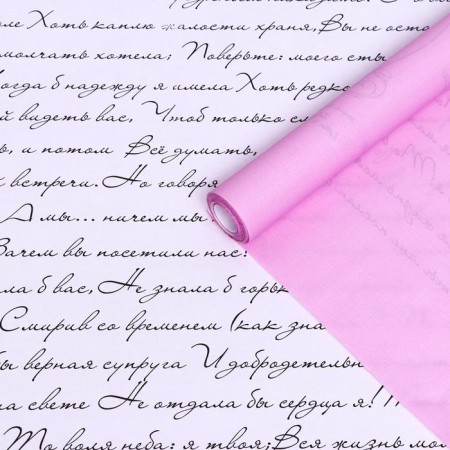 оле Хоть каплю жалости храня, Вы не оста
молчать хотела; Поверьте: моего сты
огда б надежду я имела Хоть редко
й видеть вас, Чтоб только сл
ь, и потом Всё думать,
встречи. Но говоря
А мы... ничем мы
Зачем вы посетили нас?
ла б вас, Не знала б горьк
Смирив со временем (как зна
бы верная супруга И добродетельн
на свете Не отдала бы сердца я!
То воля неба: я твоя; Вся жизнь мо